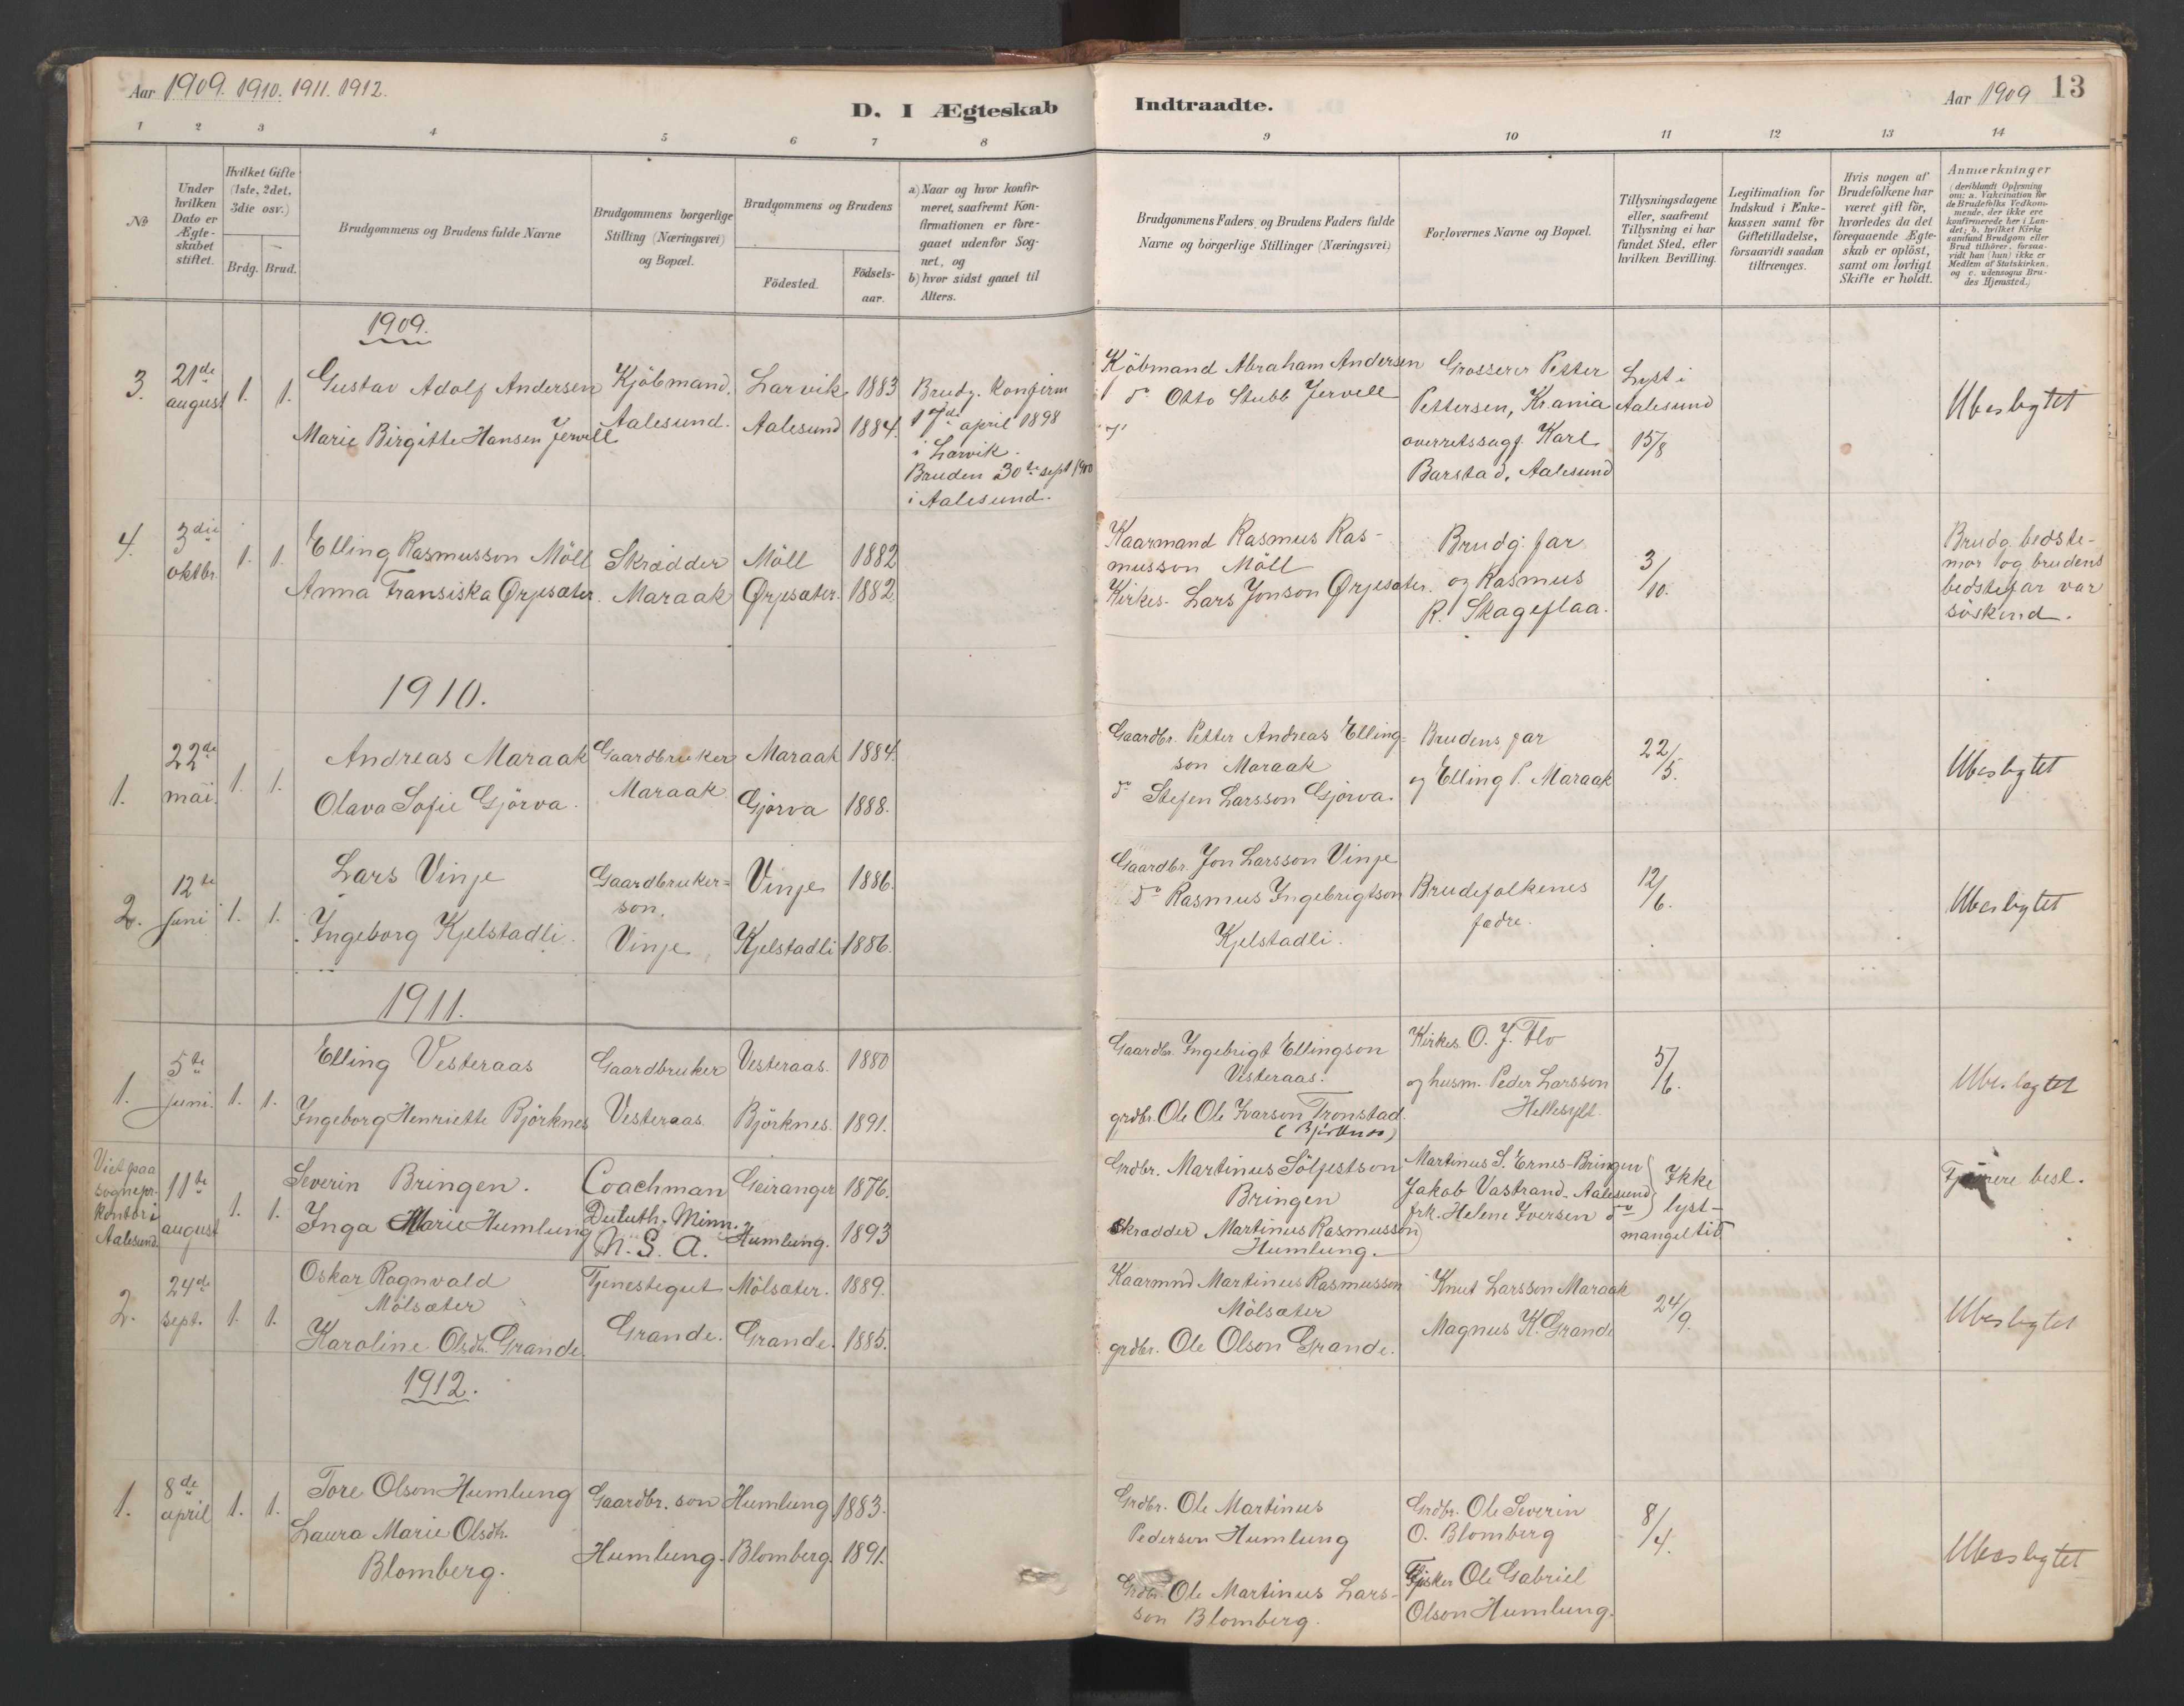 Aar 1909. 1910. 1911. 1912.
D. I Ægteskab Indtraadte.
Aar 1909 13
1 2 3 4 5 6 7 8 9 10 11 12 13 14
No
Under hvilken Dato er Ægteskabet stiftet.
Hvilket Gifte (1ste, 2det, 3die osv.)
Brdg. Brud.
Brudgommens og Brudens fulde Navne
Brudgommens borgerlige Stilling (Næringsvei) og Bopæl.
Brudgommens og Brudens
Födested.
Födselsaar.
a) Naar og hvor konfir-
meret, saafremt Kon-
firmationen er fore-
gaaet udenfor Sog-
net, og
b) hvor sidst gaaet til
Alters.
Brudgommens Faders og Brudens Faders fulde
Navne og borgerlige Stillinger (Næringsvei)
Forlovernes Navne og Bopæl.
Tillysningsdagene
eller, saafremt
Tillysning ei har
fundet Sted, efter
hvilken Bevilling.
Legitimation for
Indskud i Enke-
kassen samt for
Giftetilladelse,
forsaavidt saadan
tiltrænges.
Hvis nogen af
Brudefolkene har
været gift för,
hvorledes da det
foregaaende Ægte-
skab er oplöst,
samt om lovligt
Skifte er holdt.
Anmærkninger
(deriblandt Oplysning
om: a. Vakcination for
de Brudefolks Vedkom-
mende, der ikke ere
konfirmerede her i Lan-
det; b. hvilket Kirke
samfund Brudgom eller
Brud tilhörer, forsaa-
vidt han (hun) ikke er
Medlem af Statskirken,
og c. udensogns Bru-
des Hjemsted.)
1909.
3. 21de august 1. 1.
Gustav Adolf Andersen
Marie Birgitte Hansen Jervell
Kjöbmand.
Aalesund.
Larvik 1883
Aalesund 1884.
Brudg. konfirm
17de april 1898
i Larvik.
Bruden 30te sept 1900
i Aalesund.
Köbmand Abraham Andersen
do Otto Stubb Jervell
Grosserer Petter
Pettersen, Krania
overretssagf. Karl
Barstad, Aalesund
Lyst i
Aalesund
15/8
Ubeslegtet
4. 3die oktbr. 1. 1.
Elling Rasmusson Möll
Anna Fransiska Ørjesæter.
Skrædder
Maraak
Möll 1882
Ørjesæter. 1882.
Kaarmand Rasmus Ras-
musson Möll
Kirkes. Lars Jonson Ørjesæter.
Brudg. far
og Rasmus
R. Skageflaa.
3/10.
Brudg. bedste-
mor og brudens
bedstefar var
söskend.
1910.
1. 22de mai. 1. 1.
Andreas Maraak
Olava Sofie Gjörva.
Gaardbruker
Maraak
Maraak 1884.
Gjörva 1888.
Gaardbr. Petter Andreas Elling-
son Maraak
do Stefen Larsson Gjörva.
Brudens far
og Elling P. Maraak
22/5.
Ubeslegtet
2. 12te juni 1. 1.
Lars Vinje
Ingeborg Kjelstadli.
Gaardbruker-
son.
Vinje
Vinje 1886.
Kjelstadli 1886.
Gaardbr. Jon Larsson Vinje
do Rasmus Ingebrigtson
Kjelstadli.
Brudefolkenes
fædre.
12/6.
Ubeslegtet
1911.
1. 5te juni. 1. 1.
Elling Vesteraas
Ingeborg Henriette Björknes
Gaardbruker
Vesteraas.
Vesteraas. 1880
Björknes. 1891.
Gaardbr. Ingebrigt Ellingson
Vesteraas.
grdbr. Ole Ole Ivarson Tronstad.
(Björknes)
Kirkes. O. J. Flo
og husm. Peder Larsson
Hellesylt.
5/6.
Ubeslegtet
Viet paa
sognepr.
kontor i
Aalesund.
11te august 1. 1.
Severin Bringen.
Inga Marie Humlung
Coachman
Duluth. Minn.
U. S. A.
Geiranger 1876.
Humlung. 1893
Grdbr. Martinus Söljestson
Bringen
Skrædder Martinus Rasmusson
Humlung.
Martinus S. Ernes-Bringen
Jakob Vastrand. Aalesund
frk. Helene Iversen do
Ikke
lyst-
mangel tid
Fjernere besl.
2. 24de sept. 1. 1.
Oskar Ragnvald
Mölsæter
Karoline Olsdtr. Grande.
Tjenestegut
Grande.
Mölsæter. 1889.
Grande. 1885.
Kaarmnd Martinus Rasmusson
Mölsæter
grdbr. Ole Olson Grande.
Knut Larsson Maraak
Magnus K. Grande
24/9.
Ubeslegtet
1912.
1. 8de april 1. 1.
Tore Olson Humlung
Laura Marie Olsdtr.
Blomberg.
Gaardbr. son
Humlung.
Humlung 1883.
Blomberg. 1891.
Grdbr. Ole Martinus
Pederson Humlung
Grdbr. Ole Martinus Lars-
son Blomberg.
Grdbr. Ole Severin
O. Blomberg
Fisker Ole Gabriel
Olson Humlung.
8/4.
Ubeslegtet